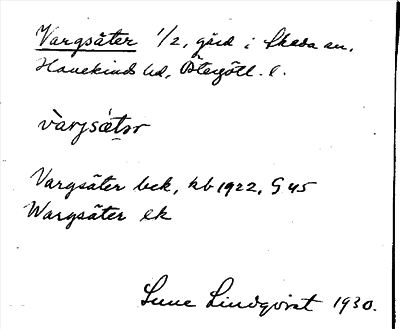 Vargsäter 1/2, gård i Skeda sn,
Hanekinds hd, Östergötl. l.
vàrjsǽtər
Vargsäter bek, kb 1922, G 45
Wargsäter ek
Sune Lindqvist 1930.